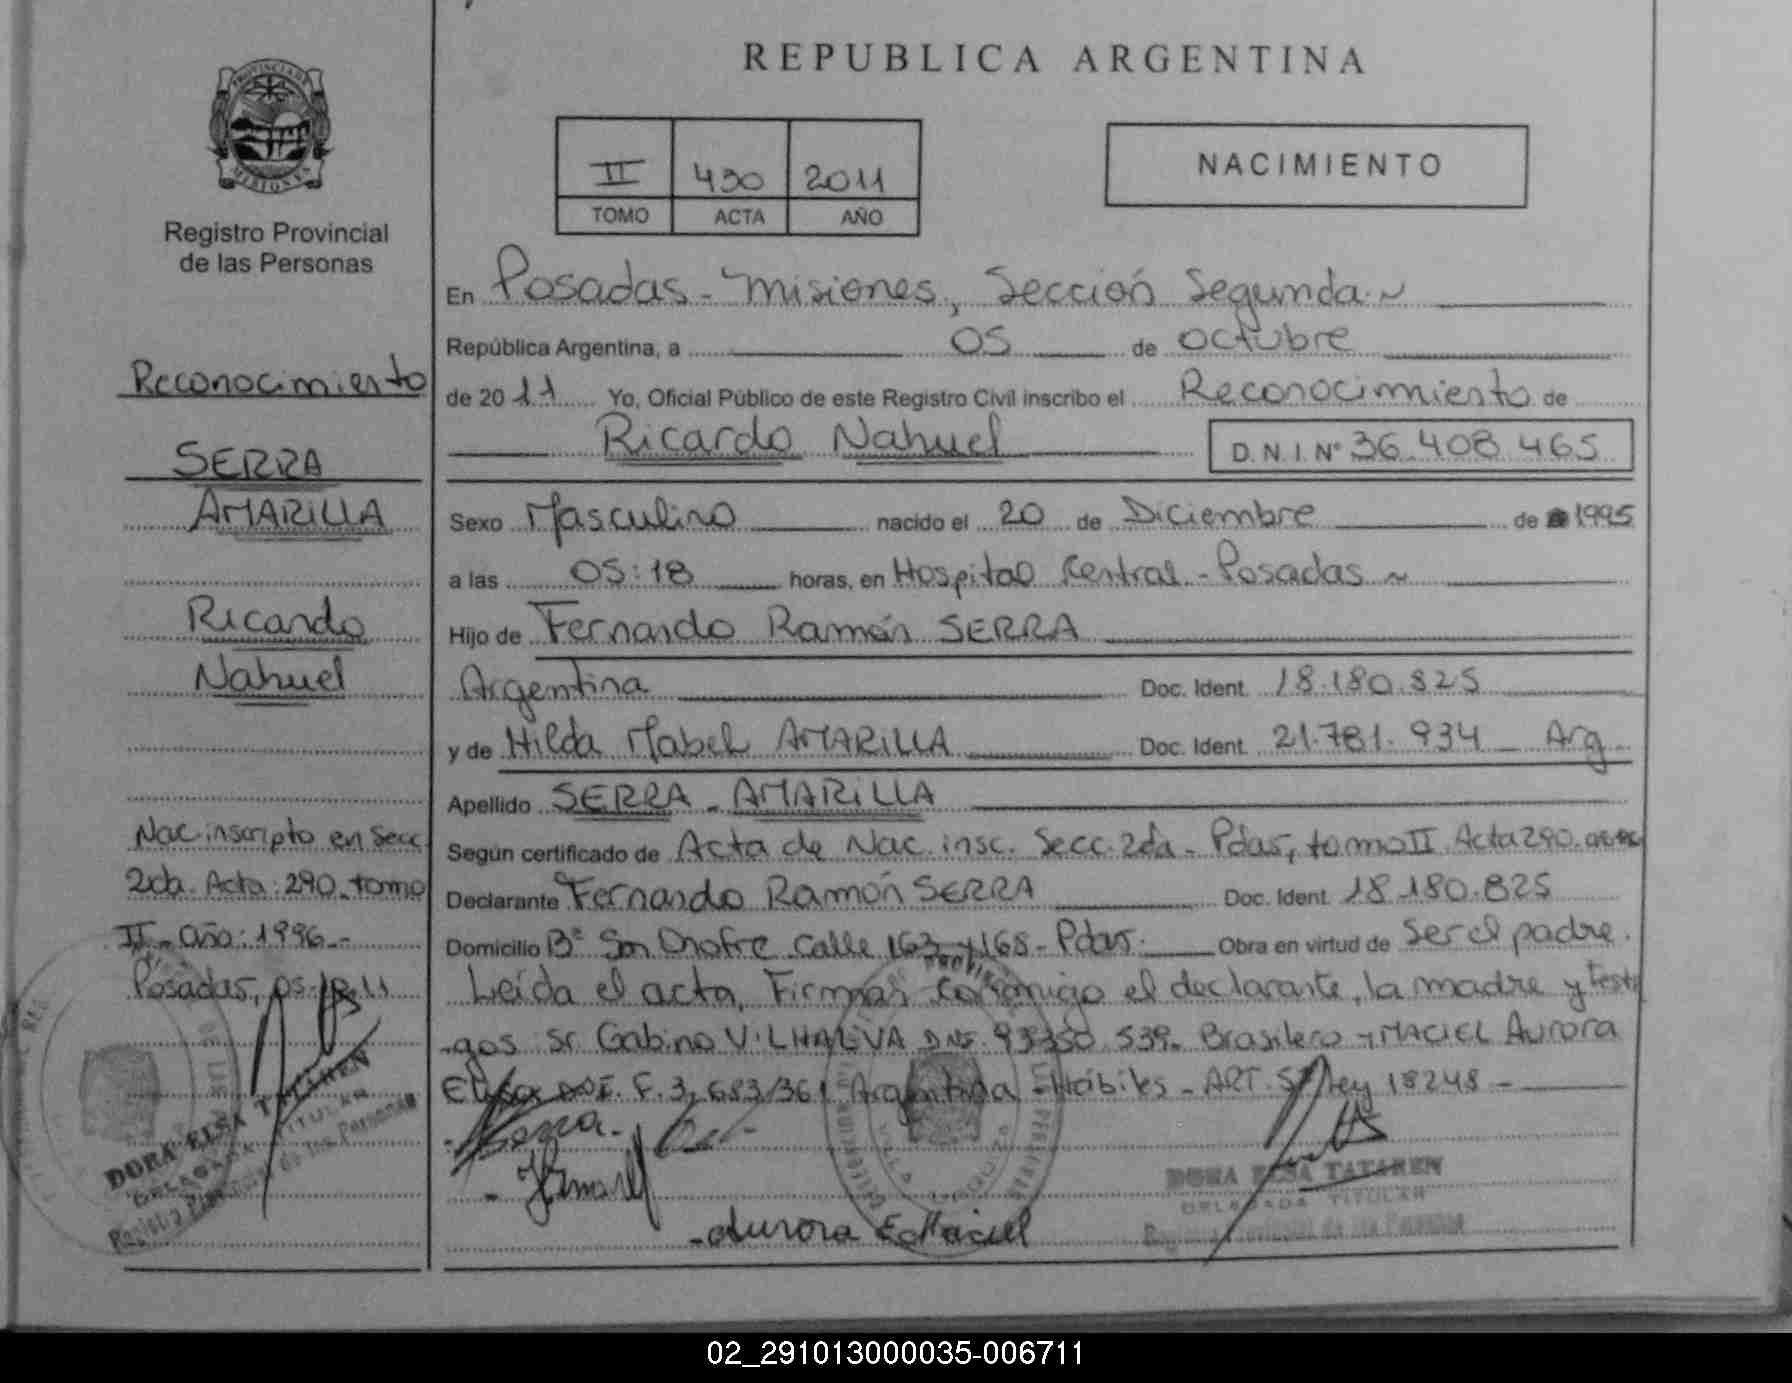 PROVINCIA DE
MISIONES
Registro Provincial
de las Personas
Reconocimiento
SERRA
AMARILLA
Ricardo
Nahuel
Nac. inscripto en Secc
2da. Acta: 290. tomo
II - Año: 1996.-
Posadas, 05-10-11
DORA ELSA TATAREN
DELEGADA TITULAR
Registro Provincial de las Personas
REPUBLICA ARGENTINA
II 430 2011
TOMO ACTA AÑO
NACIMIENTO
En Posadas - Misiones, Sección Segunda.~
República Argentina, a 05 de octubre
de 2011 Yo, Oficial Público de este Registro Civil inscribo el Reconocimiento de
Ricardo Nahuel D.N.I. Nº 36.408.465
Sexo Masculino nacido el 20 de Diciembre de 1995
a las 05:18 horas, en Hospital Central - Posadas ~
Hijo de Fernando Ramón SERRA
Argentina Doc. Ident. 18.180.825
y de Hilda Mabel AMARILLA Doc. Ident. 21.781.934 - Arg.
Apellido SERRA - AMARILLA
Según certificado de Acta de Nac. insc. Secc. 2da - Pdas, tomo II. Acta 290.
Declarante Fernando Ramón SERRA Doc. Ident. 18.180.825
Domicilio Bº San Onofre Calle 163 y 168 - Pdas. Obra en virtud de Ser el padre.
Leída el acta, Firman conmigo el declarante, la madre y testi
gos Sr Gabino VILHALVA DNI. 93350.539. Brasilero y MACIEL Aurora
Elisa F. 3,683/361 Argentina - Hábiles - ART. 5 Ley 18248 -
Serra
Aurora E. Maciel
DORA ELSA TATAREN
DELEGADA TITULAR
Registro Provincial de las Personas
02_291013000035-006711